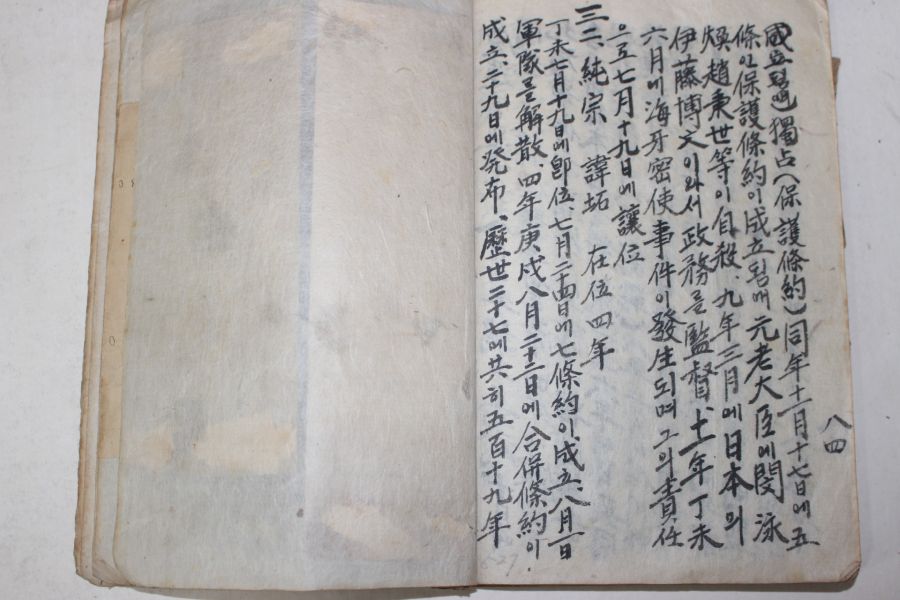 八四
獨占(保護條約)同年十一月十七日에五
條인保護條約이成立됨애元老大臣에閔泳
煥趙秉世等이自殺、九年三月에日本의
伊藤博文이와서政務를監督、十一年丁未
六月에海牙密使事件이發生되며그의責任
으로七月十九日에讓位
三二、純宗 諱坧 在位四年
丁未七月十九日에卽位、七月二十四日에七條約이成立、八月一日
軍隊를解散、四年庚戌八月二十二日에合併條約이
成立、二十九日에発布、歷世二十七에共히五百十九年